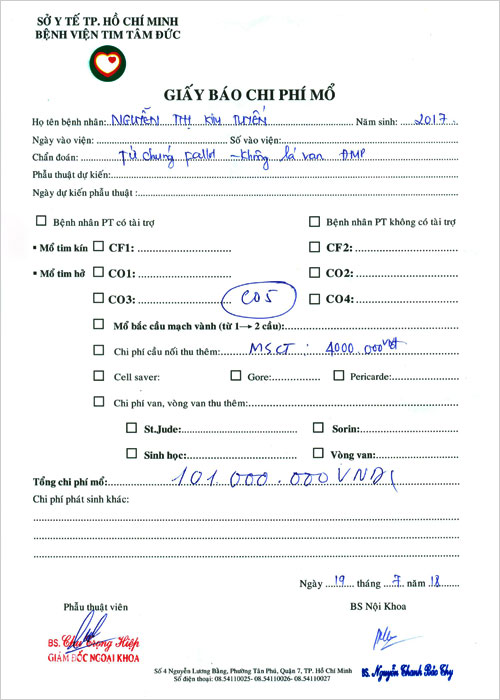 SỞ Y TẾ TP. HỒ CHÍ MINH
BỆNH VIỆN TIM TÂM ĐỨC
GIẤY BÁO CHI PHÍ MỔ
Họ tên bệnh nhân: NGUYỄN THỊ KIM TUYẾN Năm sinh: 2017
Ngày vào viện: Số vào viện:
Chẩn đoán: Tứ chứng fallot - không lá van ĐMP
Phẫu thuật dự kiến:
Ngày dự kiến phẫu thuật :
Bệnh nhân PT có tài trợ Bệnh nhân PT không có tài trợ
▪ Mổ tim kín CF1: CF2:
▪ Mổ tim hở CO1: CO2:
CO3: CO5 CO4:
Mổ bắc cầu mạch vành (từ 1→ 2 cầu):
Chi phí cầu nối thu thêm: MSCT : 4000.000 VNĐ
Cell saver: Gore: Pericarde:
Chi phí van, vòng van thu thêm:
St.Jude: Sorin:
Sinh học: Vòng van:
Tổng chi phí mổ: 101.000.000 VNĐ
Chi phí phát sinh khác:
Ngày 19 tháng 7 năm 18
Phẫu thuật viên BS Nội Khoa
BS. Chu Trọng Hiệp
GIÁM ĐỐC NGOẠI KHOA
BS. Nguyễn Thanh Bảo Thy
Số 4 Nguyễn Lương Bằng, Phường Tân Phú, Quận 7, TP. Hồ Chí Minh
Số điện thoại: 08.54110025 - 08.54110026 - 08.54110027